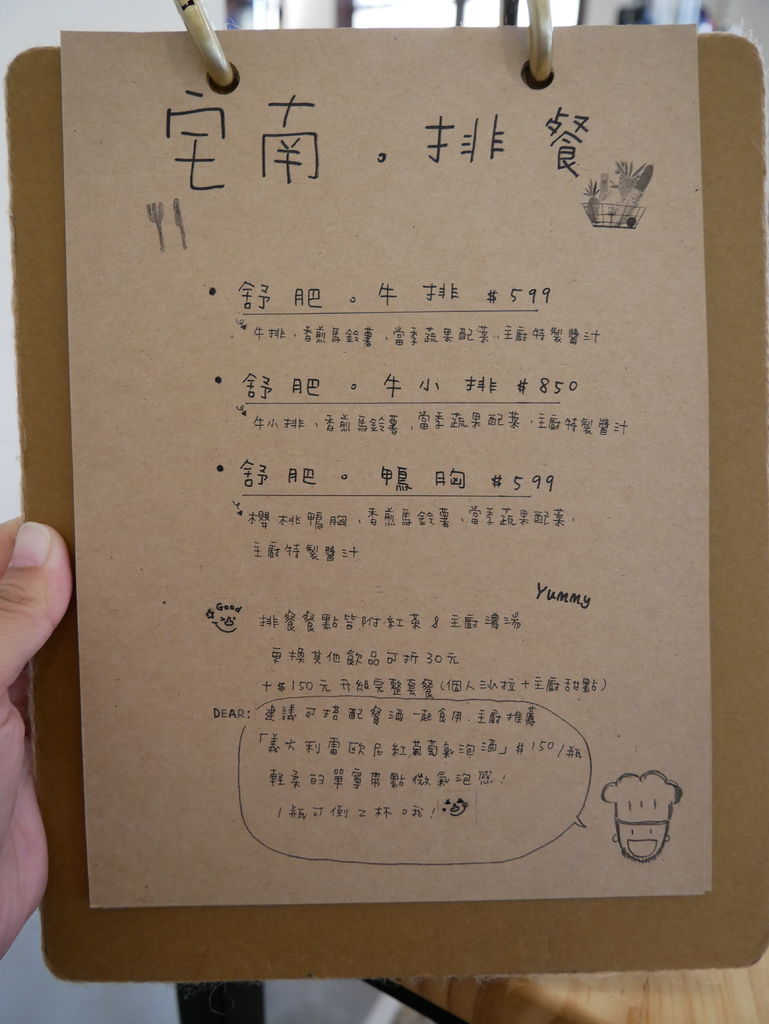 宅南。排餐
• 舒肥。牛排 $599
牛排、香煎馬鈴薯、當季蔬果配菜、主廚特製醬汁
• 舒肥。牛小排 $850
牛小排、香煎馬鈴薯、當季蔬果配菜、主廚特製醬汁
• 舒肥。鴨胸 $599
櫻桃鴨胸、香煎馬鈴薯、當季蔬果配菜、
主廚特製醬汁
Yummy
Good
排餐餐點皆附紅茶&主廚濃湯
更換其他飲品可折30元
+$150元升級完整套餐(個人沙拉+主廚甜點)
DEAR: 建議可搭配餐酒一起食用.主廚推薦
「義大利雷歐尼紅葡萄氣泡酒」$150/瓶
輕柔的單寧帶點微氣泡感!
1瓶可倒2杯哦!